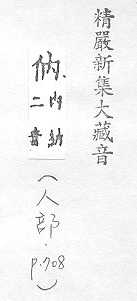 精嚴新集大藏音
㐻 內納
二音
(人部.p.708)